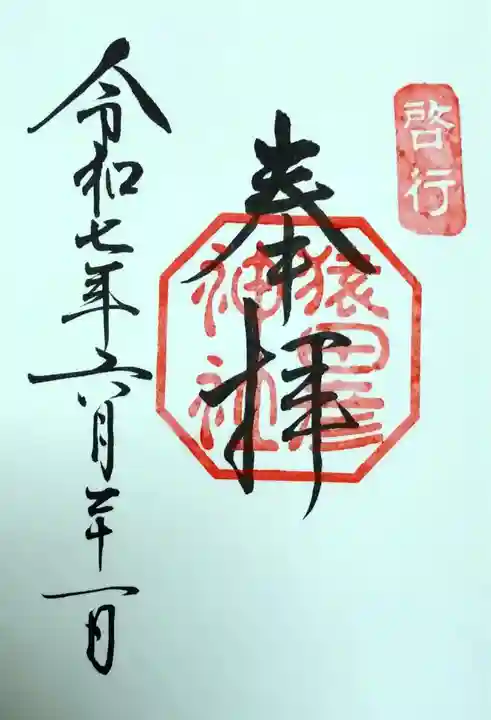 啓行
奉拝
猿田彦
神社
令和七年六月二十一日